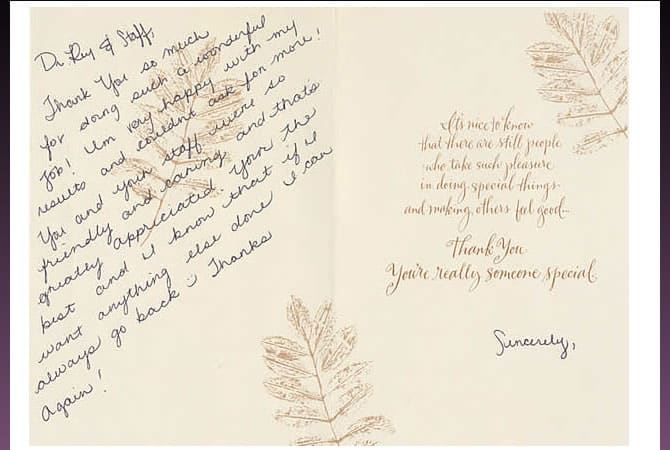 Dr. Ruy & Staff,
Thank You so much
for doing such a wonderful
job! I'm very happy with my
results and couldnt ask for more!
You and your staff were so
friendly and caring and thats
greatly appriciated. Your the
best and I know that if I
want anything else done I can
always go back :) Thanks
Again!
It's nice to know
that there are still people
who take such pleasure
in doing special things
and making others feel good...
Thank You
You're really someone special.
Sincerely,